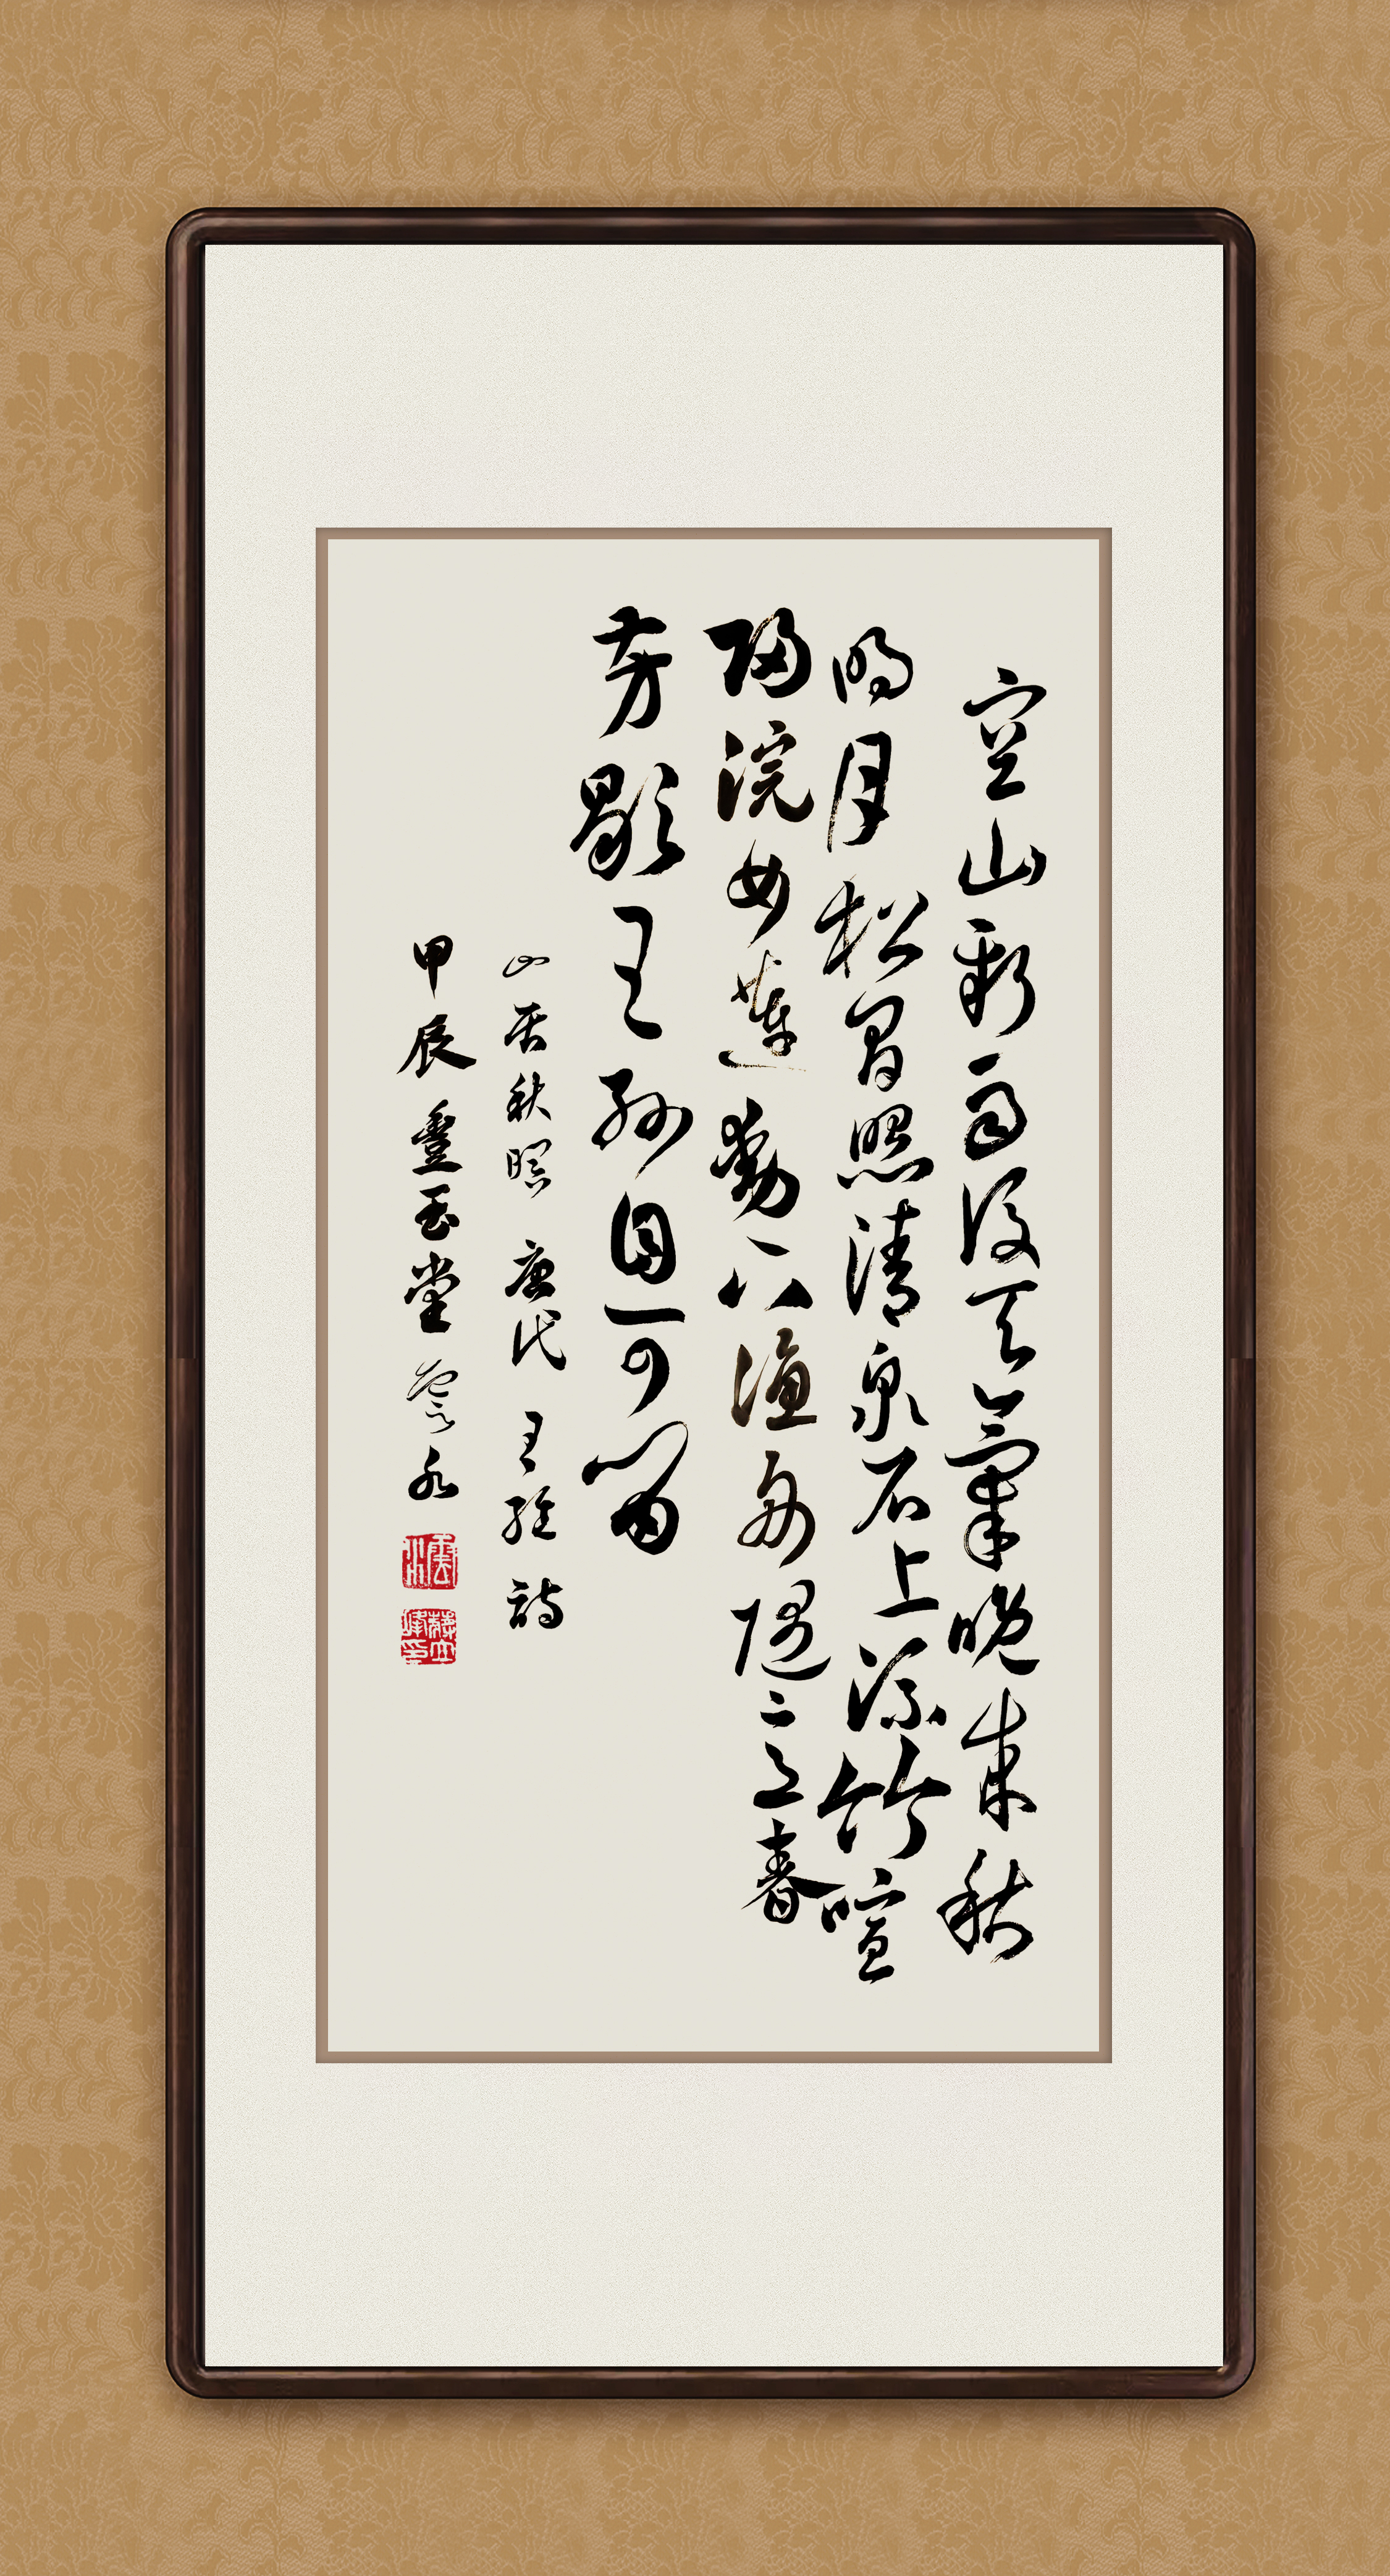 空山新雨後天氣晚來秋
明月松間照清泉石上流竹喧
歸浣女蓮動下漁舟隨意春
芳歇王孫自可留
山居秋暝 唐代 王維 詩
甲辰 豐玉堂 水